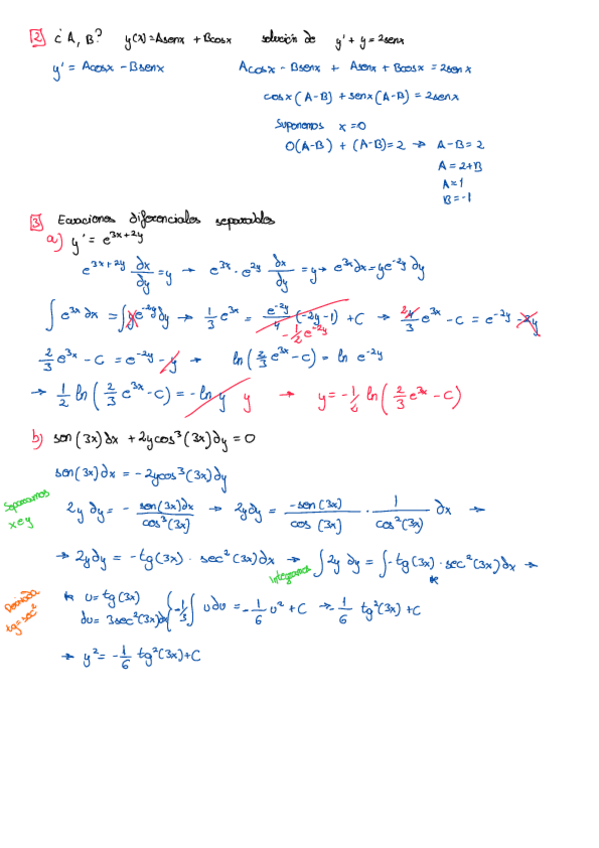 2 ¿A, B? y(x)=Asenx + Bcosx solución de y' + y = 2senx
y' = Acosx - Bsenx Acosx - Bsenx + Asenx + Bcosx = 2senx
cosx(A-B) + senx(A-B) = 2senx
Suponemos x=0
0(A-B) + (A-B)=2 → A-B=2
A=2+B
A=1
B=-1
3 Ecuaciones diferenciales separables
a) y' = e^{3x+2y}
e^{3x+2y} ∂x/∂y = y → e^{3x} · e^{2y} ∂x/∂y = y → e^{3x}∂x = ye^{-2y}∂y
∫e^{3x}∂x = ∫ye^{-2y}∂y → 1/3 e^{3x} = e^{-2y}/4 (-2y-1) + C → 2/3 e^{3x} - C = e^{-2y} - y
-1/2 e^{-2y}
2/3 e^{3x} - C = e^{-2y} - y → ln(2/3 e^{3x} - C) = ln e^{-2y}
→ 1/2 ln(2/3 e^{3x} - C) = -ln y y → y = -1/2 ln(2/3 e^{3x} - C)
b) sen(3x)∂x + 2ycos³(3x)∂y = 0
sen(3x)∂x = -2ycos³(3x)∂y
Separamos x e y
2y ∂y = - sen(3x)∂x/cos³(3x) → 2y∂y = -sen(3x)/cos(3x) · 1/cos²(3x) ∂x →
→ 2y∂y = -tg(3x) · sec²(3x)∂x → ∫2y ∂y = ∫-tg(3x) · sec²(3x)∂x →
Integramos *
Derivada tg=sec²
* u=tg(3x)
∂u= 3sec²(3x)∂x } -1/3 ∫u∂u = -1/6 u² + C → -1/6 tg²(3x) + C
→ y² = -1/6 tg²(3x)+C